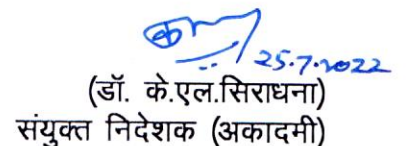 25.7.2022
(डॉ. के.एल.सिराधना)
संयुक्त निदेशक (अकादमी)